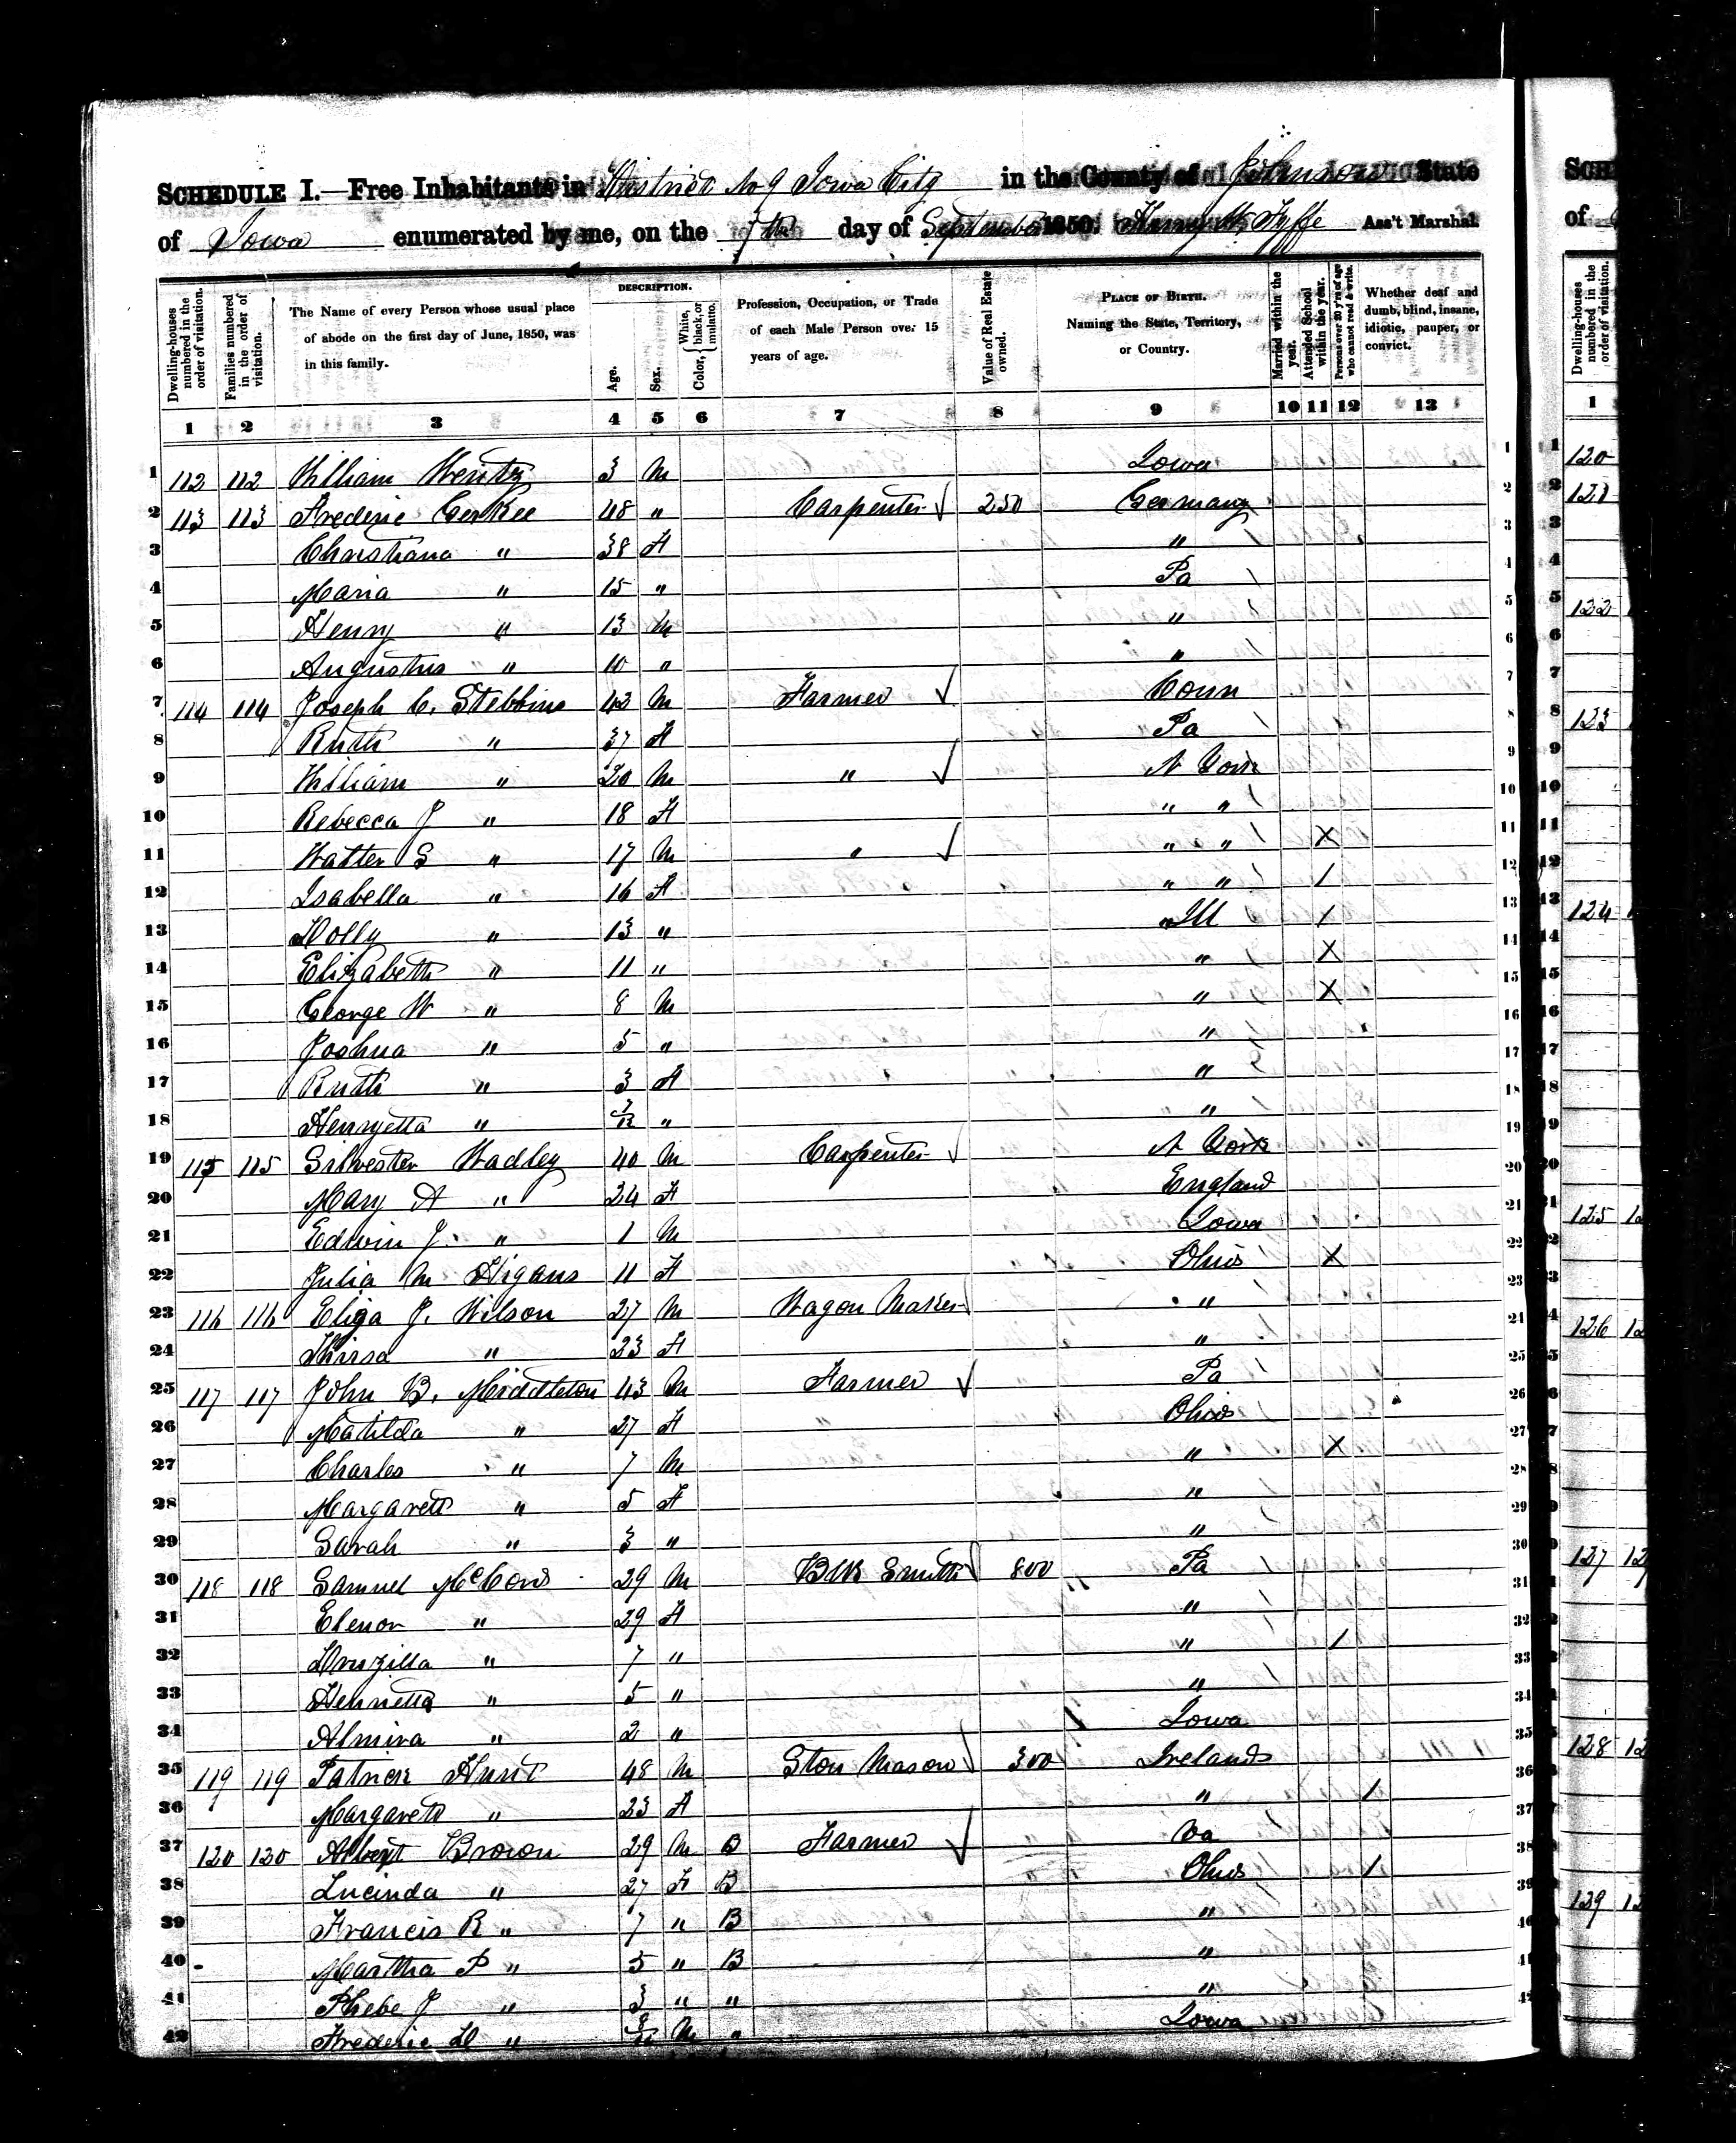 SCHEDULE I.—Free Inhabitants in District No 9 Iowa City in the County of Johnson State
of Iowa enumerated by me, on the 7th day of September 1850. Harvey W. Fyffe Ass't Marshal.
Dwelling-houses numbered in the order of visitation. Families numbered in the order of visitation. The Name of every Person whose usual place of abode on the first day of June, 1850, was in this family. DESCRIPTION. Age. Sex. Color, { White, black, or mulatto. Profession, Occupation, or Trade of each Male Person over 15 years of age. Value of Real Estate owned. PLACE OF BIRTH. Naming the State, Territory, or Country. Married within the year. Attended School within the year. Persons over 20 y'rs of age who cannot read & write. Whether deaf and dumb, blind, insane, idiotic, pauper, or convict.
1 2 3 4 5 6 7 8 9 10 11 12 13
1 112 112 William Wentz 3 M Iowa 1
2 113 113 Frederic Gerkee 48 " Carpenter 250 Germany 2
3 Christiana " 38 F " 3
4 Maria " 15 " Pa 4
5 Henry " 13 M " 5
6 Augustus " 10 " " 6
7 114 114 Joseph C. Stebbins 42 M Farmer Conn 7
8 Ruth " 37 F Pa 8
9 William " 20 M " N York 9
10 Rebecca J " 18 F " " 10
11 Walter S " 17 M " " " X 11
12 Isabella " 16 F " " / 12
13 Dolly " 13 " Ill / 13
14 Elizabeth " 11 " " X 14
15 George W " 8 M " X 15
16 Joshua " 5 " " 16
17 Ruth " 3 F " 17
18 Henryetta " 7/12 " " 18
19 115 115 Silvester Hadley 40 M Carpenter N York 19
20 Mary A " 24 F England 20
21 Edwin J. " 1 M Iowa 21
22 Julia M Higans 11 F Ohio X 22
23 116 116 Eliga J. Wilson 27 M Wagon Maker " 23
24 Thirsa " 23 F " 24
25 117 117 John B. Middleton 43 M Farmer Pa 25
26 Matilda " 27 F Ohio 26
27 Charles " 7 M " X 27
28 Margarett " 5 F " 28
29 Sarah " 3 " " 29
30 118 118 Samuel McCord 29 M Blk Smith 800 Pa 30
31 Elenor " 29 F " 31
32 Druzilla " 7 " " / 32
33 Henrietta " 5 " " 33
34 Almira " 2 " Iowa 34
35 119 119 Patrick Hunt 48 M Ston Mason 300 Ireland 35
36 Margarett " 23 F " / 36
37 120 120 Albert Brown 29 M B Farmer Va 37
38 Lucinda " 27 F B Ohio / 38
39 Francis R " 7 " B " 39
40 Martha P " 5 " B " 40
41 Phebe J " 3 " " " 41
42 Frederic D " M " Iowa 42
SCH
of
Dwelling-houses numbered in the order of visitation.
1
1 120
2 121
3
4
5 122
6
7
8 123
9
10
11
12
13 124
14
15
16
17
18
19
20
21 125 12
22
23
24 126 12
25
26
27
28
29
30 127 12
128 12
129 12